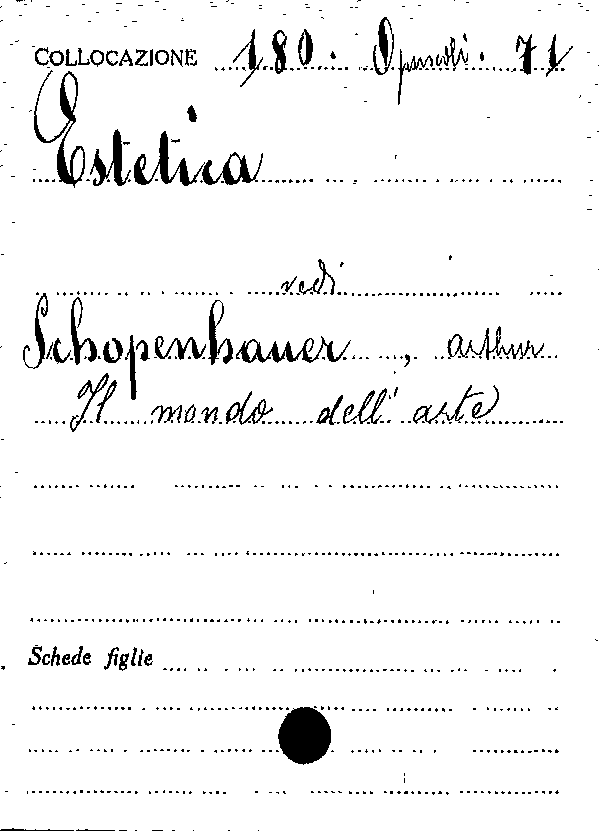 COLLOCAZIONE 180. Opuscoli. 71
Estetica
vedi
Schopenhauer, Arthur
Il mondo dell'arte
Schede figlie